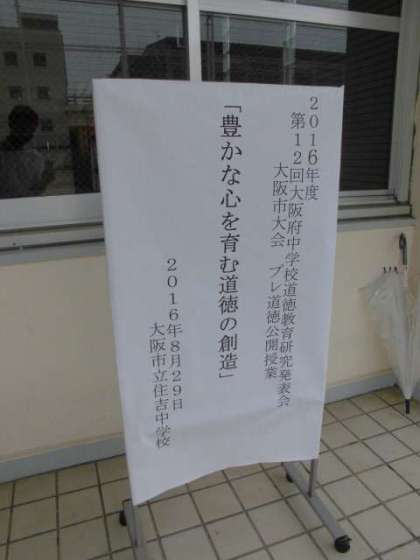 2016年度
第12回大阪府中学校道徳教育研究発表会
大阪市大会　プレ道徳公開授業
「豊かな心を育む道徳の創造」
2016年8月29日
大阪市立住吉中学校